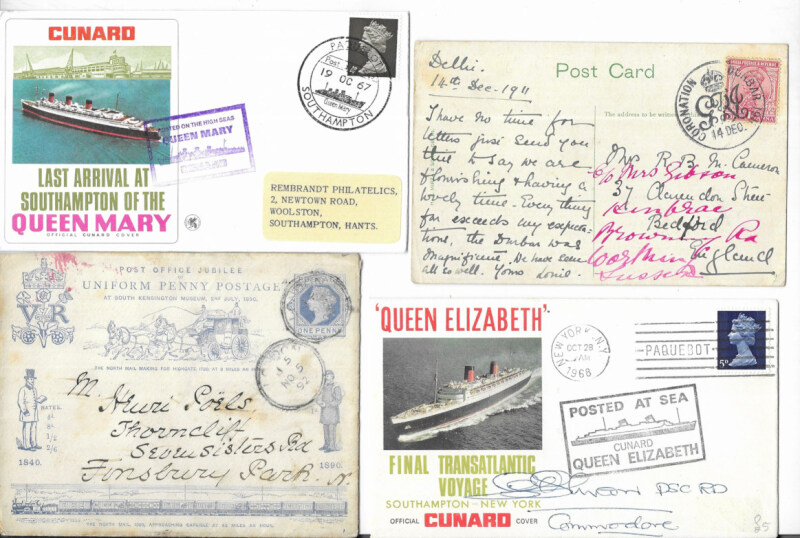 CUNARD
PAQUEBOT
Post
19 OC 67
Queen Mary
SOUTHAMPTON
POSTED ON THE HIGH SEAS
QUEEN MARY
LAST ARRIVAL AT
SOUTHAMPTON OF THE
QUEEN MARY
OFFICIAL CUNARD COVER
REMBRANDT PHILATELICS,
2, NEWTOWN ROAD,
WOOLSTON,
SOUTHAMPTON, HANTS.
Delhi.
14th Dec. 1911
Post Card
CORONATION DURBAR
14 DEC.
The address to be written
I have no time for
letters just send you
this to say we are
flourishing & having a
lovely time. Everything
far exceeds my expecta-
tions, the Durbar was
magnificent. We have seen
all so well. Yours
Mrs R. B. McCameron
c/o Mrs Gibson
37 Clarendon Street
Bedford
England
Browning Rd
Worthing
Sussex
POST OFFICE JUBILEE
OF
UNIFORM PENNY POSTAGE
AT SOUTH KENSINGTON MUSEUM, 2ND JULY, 1890.
VR
ONE PENNY
THE NORTH MAIL
AT 8 MILES AN HOUR.
NO 5
92
M. Henri Poëls
Thorncliff
Seven Sisters Rd
Finsbury Park. N.
RATES.
1840.
1890.
THE NORTH MAIL, 1890, APPROACHING CARLISLE AT 48 MILES AN HOUR.
'QUEEN ELIZABETH'
NEW YORK, N.Y.
OCT 28
AM
1968
PAQUEBOT
5D
POSTED AT SEA
CUNARD
QUEEN ELIZABETH
FINAL TRANSATLANTIC
VOYAGE
SOUTHAMPTON - NEW YORK
OFFICIAL CUNARD COVER
DSC RD
Commodore